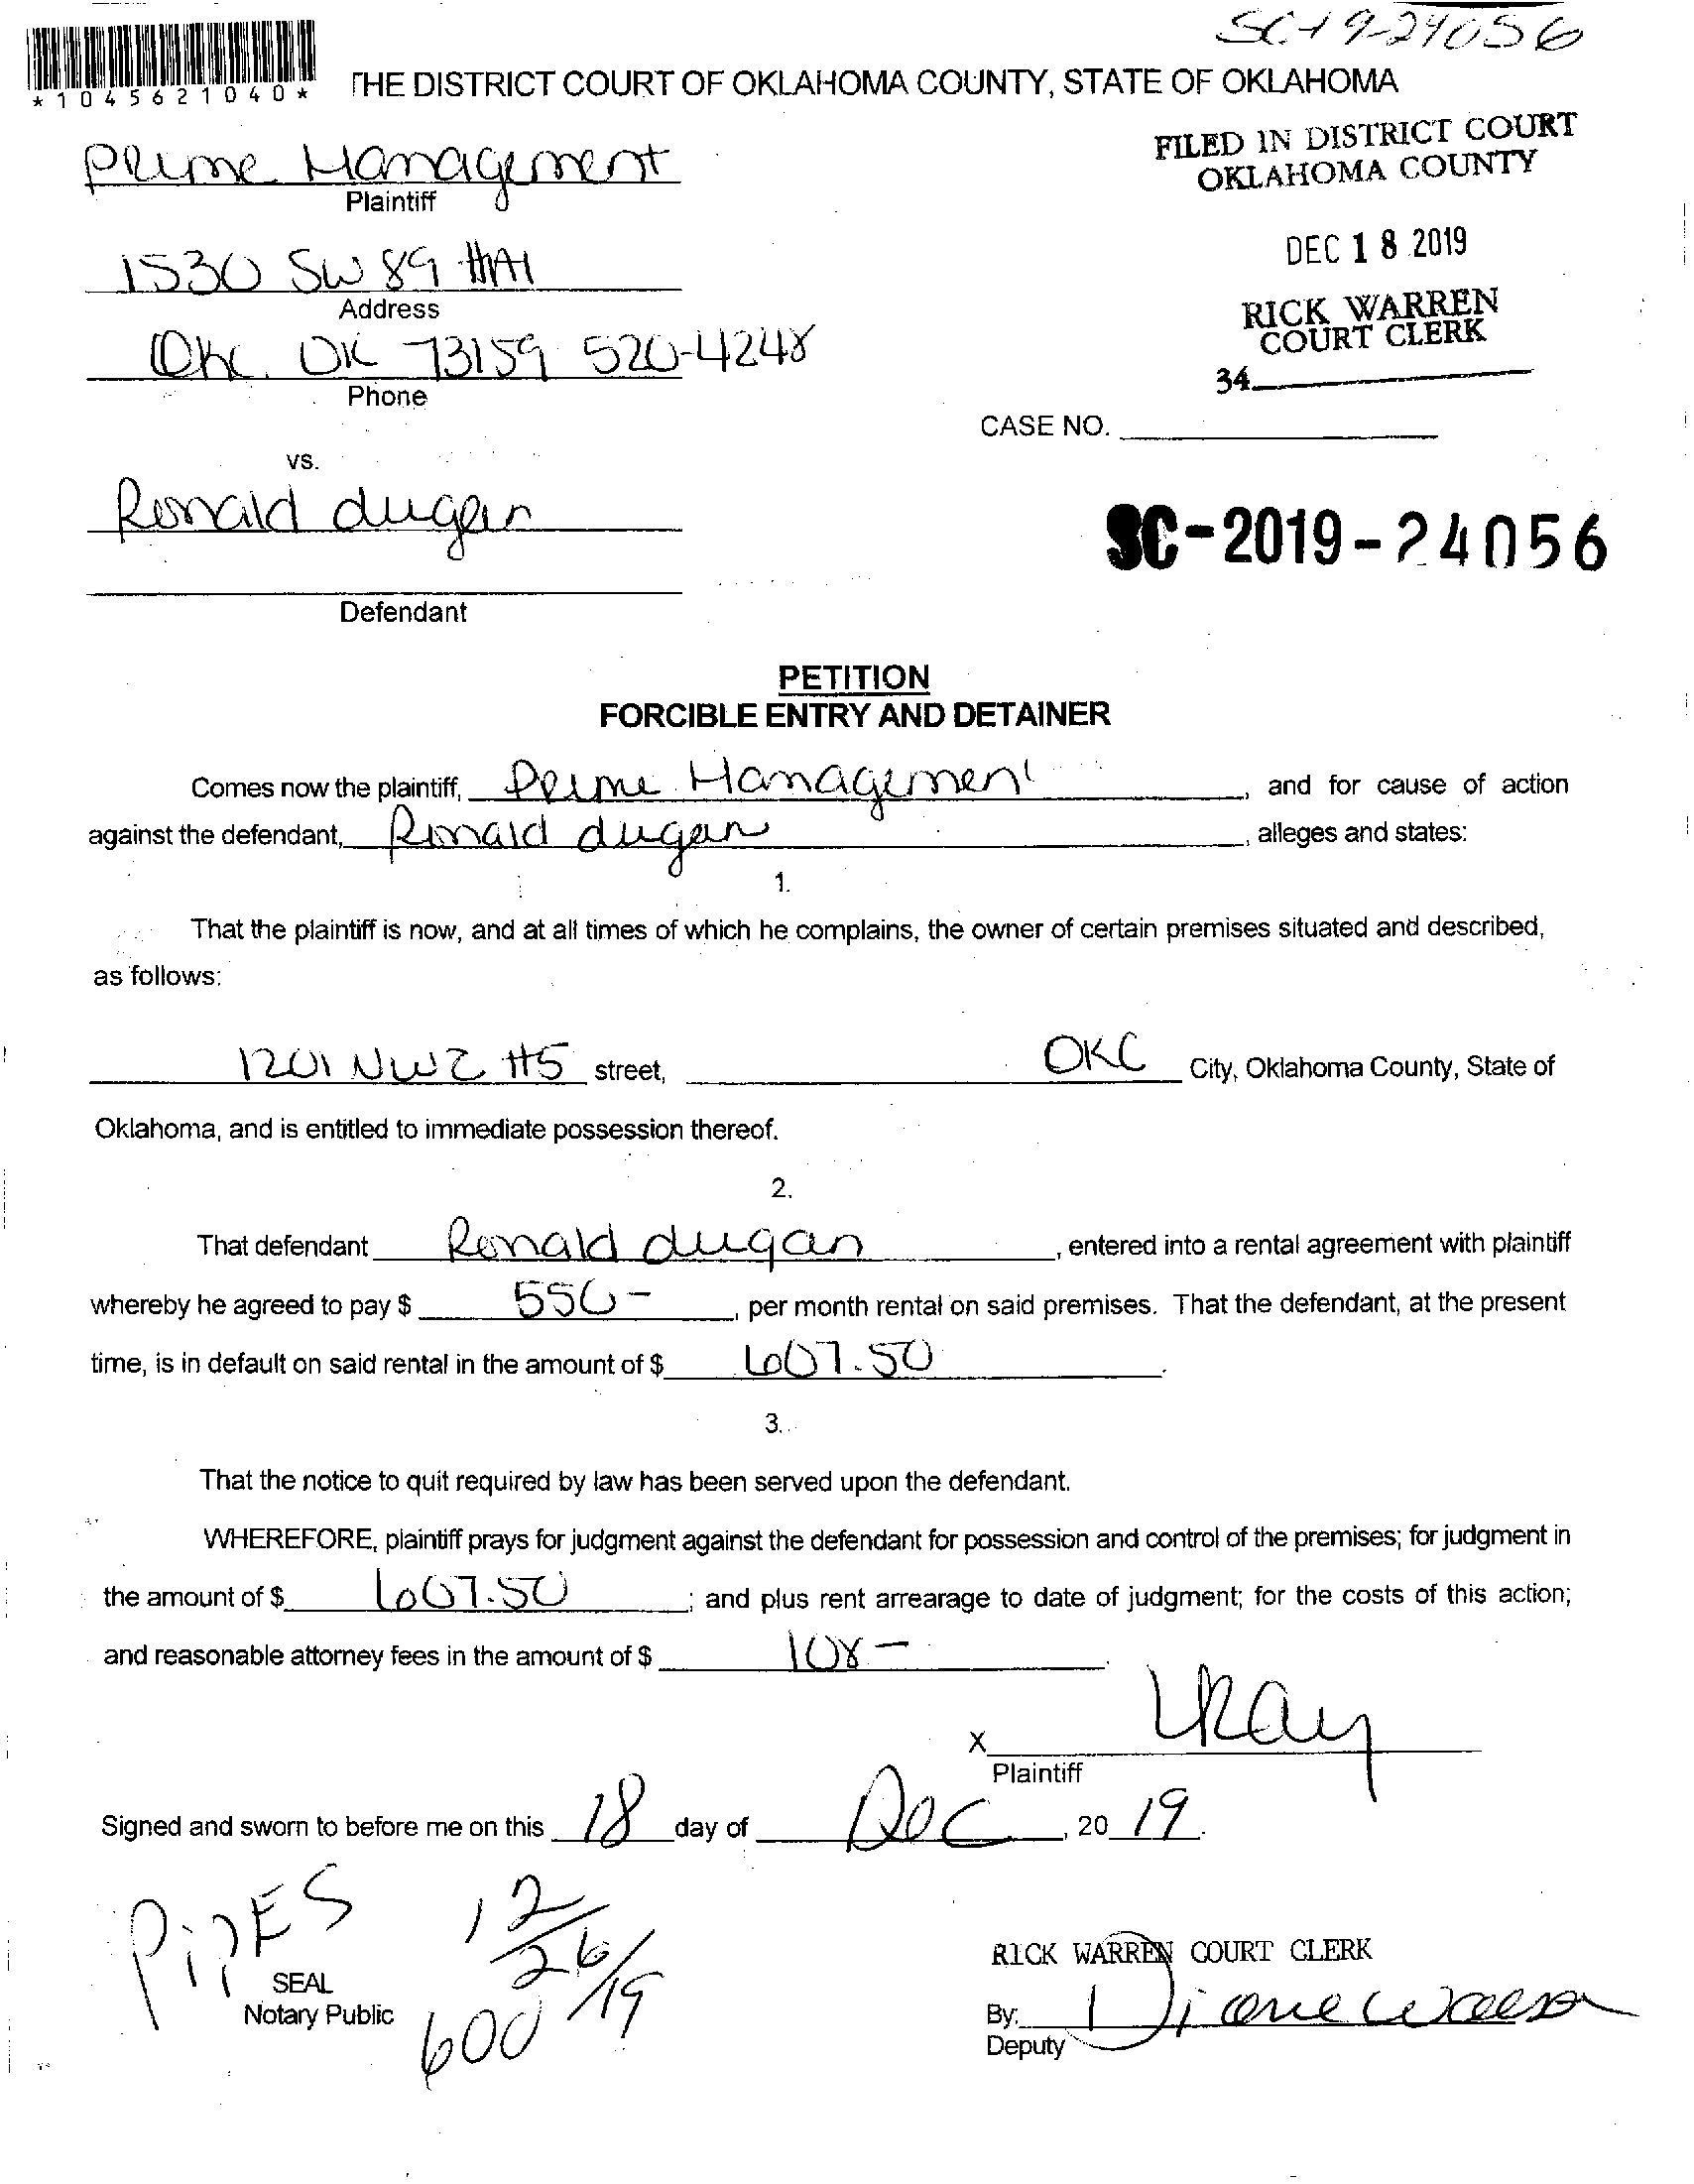 SC-19-24056
*1045621040*
THE DISTRICT COURT OF OKLAHOMA COUNTY, STATE OF OKLAHOMA
FILED IN DISTRICT COURT
OKLAHOMA COUNTY
DEC 18 2019
RICK WARREN
COURT CLERK
34
Prime Management
Plaintiff
1530 SW 89 #A1
Address
OKC OK 73159 520-4248
Phone
CASE NO.
vs.
Ronald dugan
SC-2019-24056
Defendant
PETITION
FORCIBLE ENTRY AND DETAINER
Comes now the plaintiff, Prime Management, and for cause of action
against the defendant, Ronald dugan, alleges and states:
1.
That the plaintiff is now, and at all times of which he complains, the owner of certain premises situated and described,
as follows:
1201 NW 2 #5 street, OKC City, Oklahoma County, State of
Oklahoma, and is entitled to immediate possession thereof.
2.
That defendant Ronald dugan, entered into a rental agreement with plaintiff
whereby he agreed to pay $ 550-, per month rental on said premises. That the defendant, at the present
time, is in default on said rental in the amount of $ 607.50.
3.
That the notice to quit required by law has been served upon the defendant.
WHEREFORE, plaintiff prays for judgment against the defendant for possession and control of the premises; for judgment in
the amount of $ 607.50; and plus rent arrearage to date of judgment; for the costs of this action;
and reasonable attorney fees in the amount of $ 108-.
X LRay
Plaintiff
Signed and sworn to before me on this 18 day of Dec, 20 19.
PipES 12/26/19
600
SEAL
Notary Public
RICK WARREN COURT CLERK
By:
Deputy